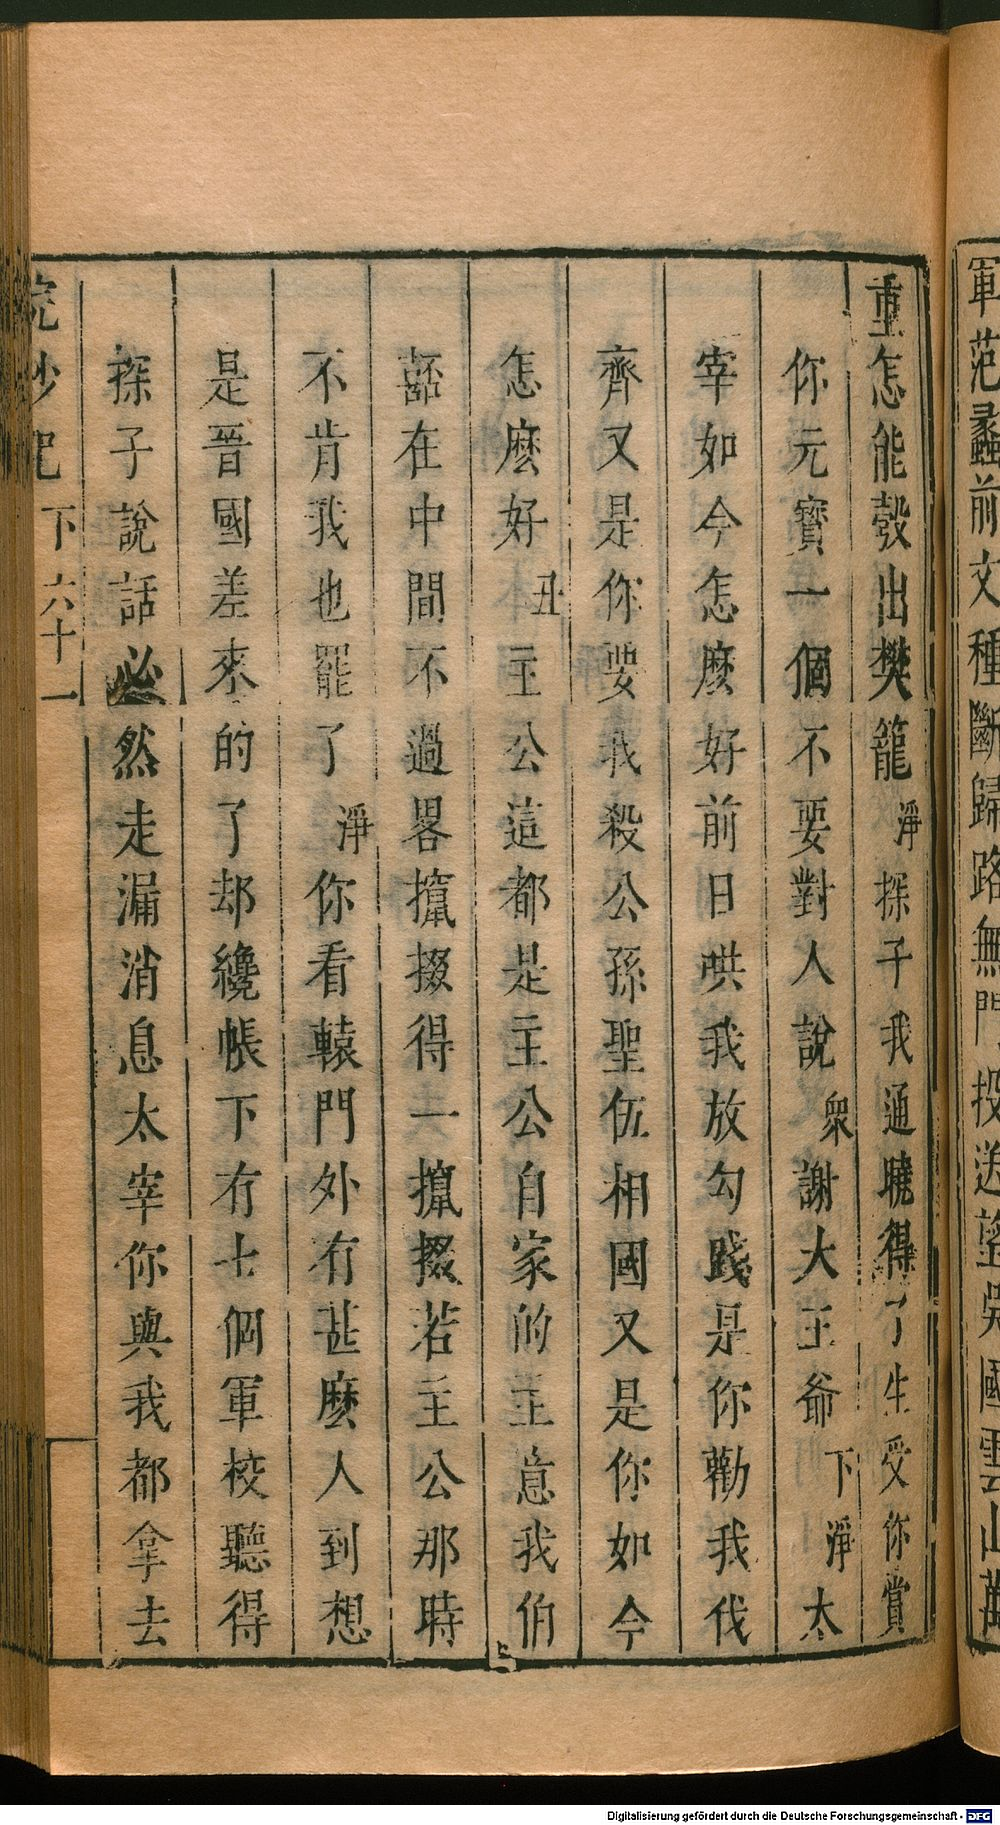 軍范蠡前文種斷歸路無門投送望吳國雲山萬
重怎能彀出樊籠淨探子我通曉得了生受你賞
你元寶一個不要對人說衆謝大王爺下淨太
宰如今怎麽好前日哄我放勾踐是你勸我伐
齊又是你要我殺公孫聖伍相國又是你如今
怎麽好丑主公這都是主公自家的主意我伯
嚭在中間不過畧攛掇得一攛掇若主公那時
不肯我也罷了淨你看轅門外有甚麽人到想
是晉國差來的了却纔帳下有七個軍校聽得
探子說話必然走漏消息太宰你與我都拿去
浣紗記 下 六十一
Digitalisierung gefördert durch die Deutsche Forschungsgemeinschaft - DFG